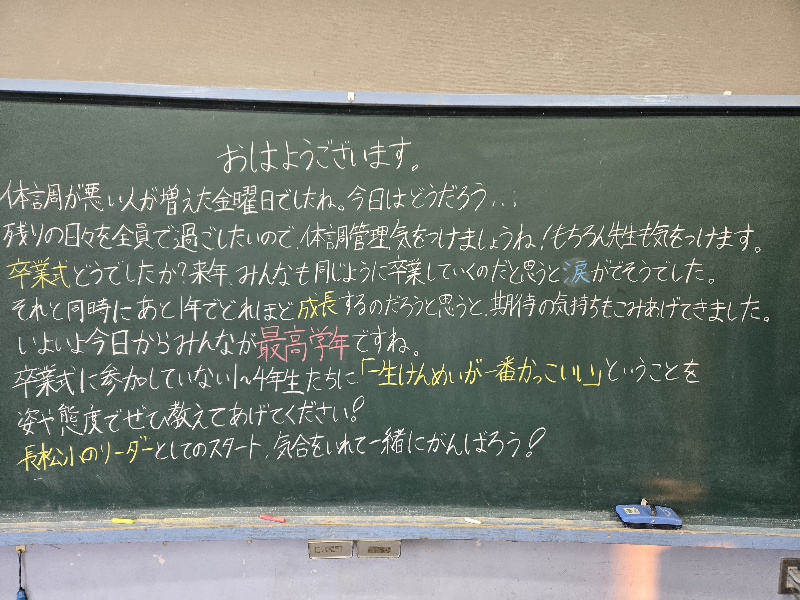 おはようございます。
体調が悪い人が増えた金曜日でしたね。今日はどうだろう...
残りの日々を全員で過ごしたいので、体調管理気をつけましょうね!もちろん先生も気をつけます。
卒業式どうでしたか?来年、みんなも同じように卒業していくのだと思うと涙がでそうでした。
それと同時にあと1年でどれほど成長するのだろうと思うと、期待の気持ちもこみあげてきました。
いよいよ今日からみんなが最高学年ですね。
卒業式に参加していない1~4年生たちに「一生けんめいが一番かっこいい」ということを
姿や態度でぜひ教えてあげてください!
長松小のリーダーとしてのスタート、気合をいれて一緒にがんばろう!